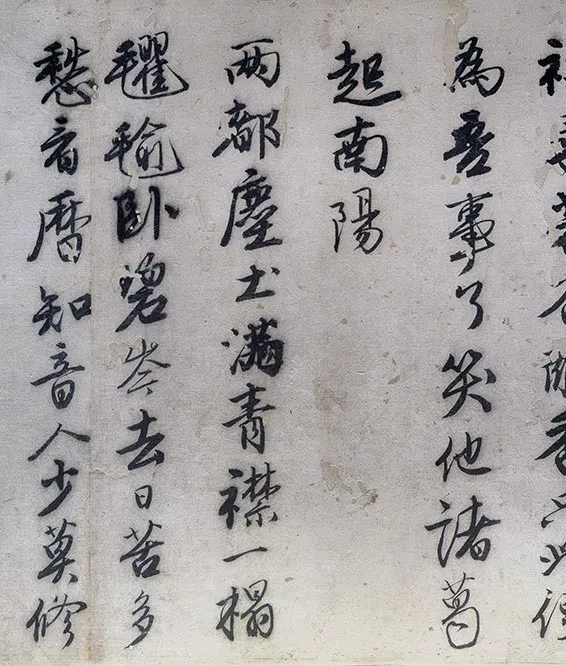 為吾事了笑他諸葛
起南陽
两都塵土滿青襟一榻
氍毹卧碧岑去日苦多
愁看曆知音人少莫修